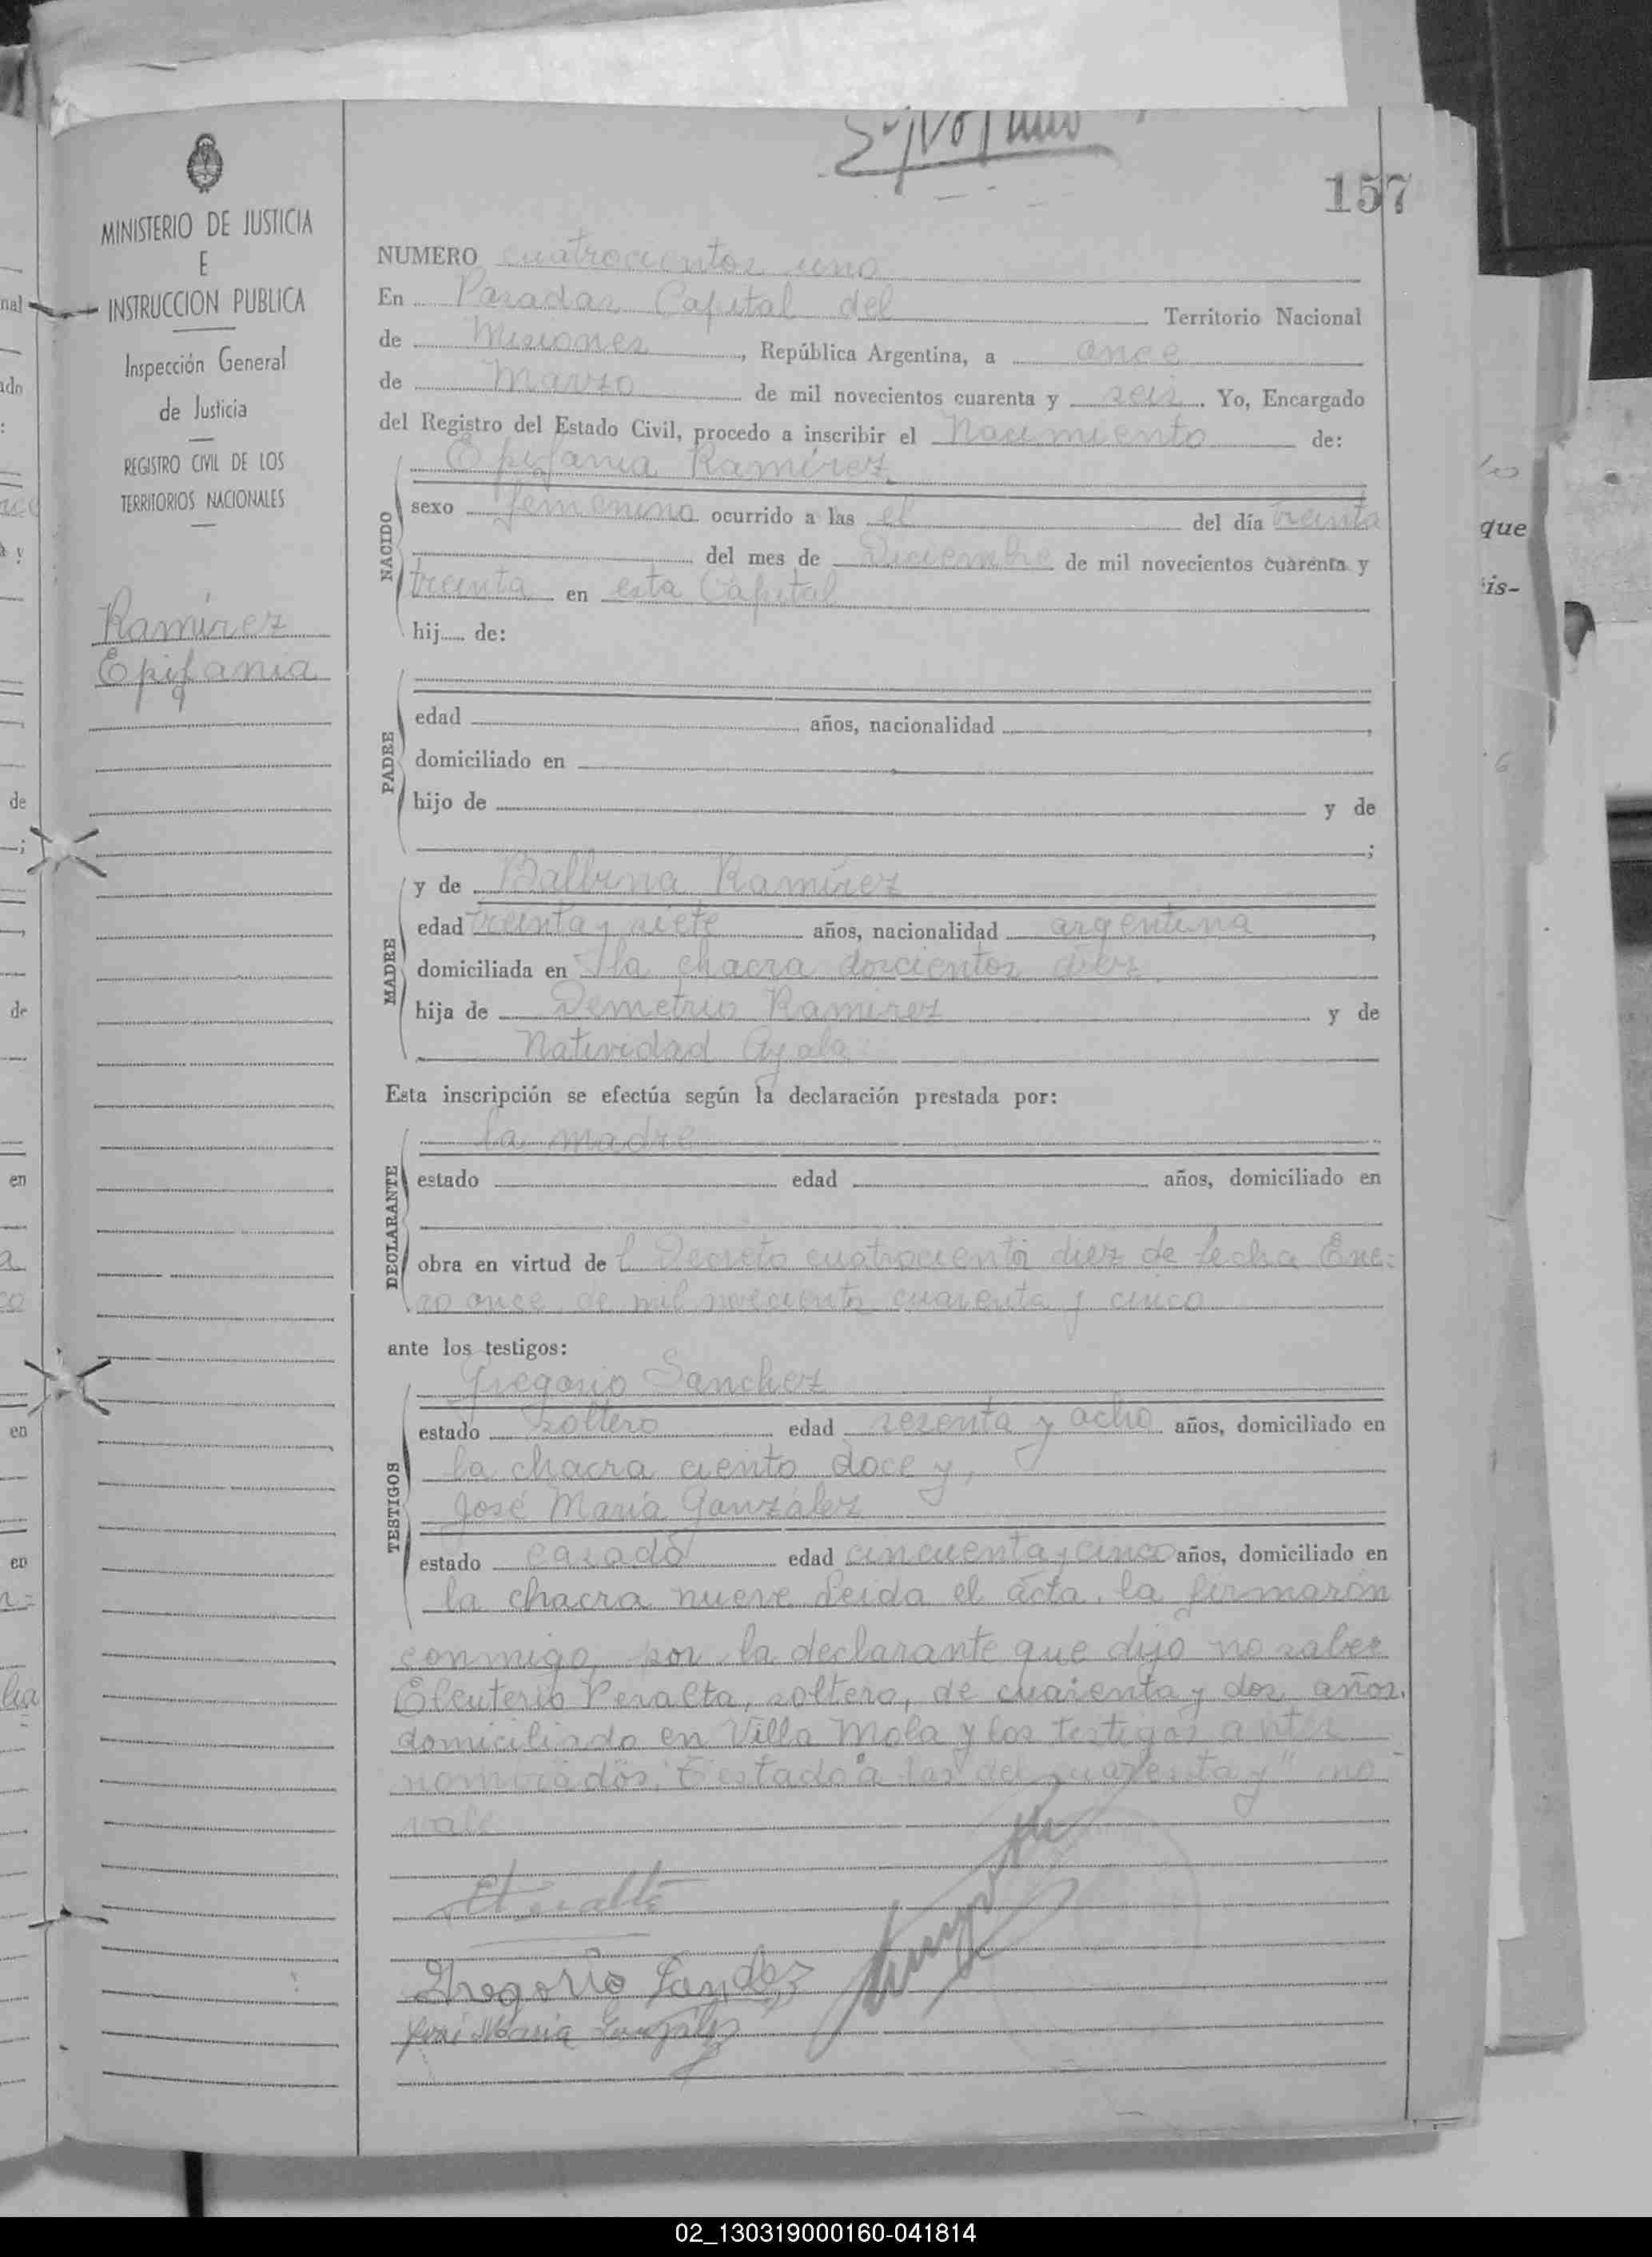 157
MINISTERIO DE JUSTICIA
E
INSTRUCCION PUBLICA
Inspección General
de Justicia
REGISTRO CIVIL DE LOS
TERRITORIOS NACIONALES
Ramírez
Epifania
NUMERO cuatrocientos uno
En Posadas Capital del Territorio Nacional
de Misiones, República Argentina, a once
de Marzo de mil novecientos cuarenta y seis. Yo, Encargado
del Registro del Estado Civil, procedo a inscribir el Nacimiento de:
Epifania Ramírez
NACIDO
sexo femenino ocurrido a las el del día treinta
del mes de Diciembre de mil novecientos cuarenta y
treinta en esta Capital
hij de:
PADRE
edad años, nacionalidad ,
domiciliado en
hijo de y de
;
MADRE
y de Balbina Ramírez
edad treinta y siete años, nacionalidad argentina,
domiciliada en la chacra doscientos diez
hija de Demetrio Ramírez y de
Natividad Ayala
Esta inscripción se efectúa según la declaración prestada por:
DECLARANTE
la madre
estado edad años, domiciliado en
obra en virtud de l Decreto cuatrociento diez de fecha Ene-
ro once de mil novecientos cuarenta y cinco
ante los testigos:
TESTIGOS
Gregorio Sanchez
estado soltero edad sesenta y ocho años, domiciliado en
la chacra ciento doce y,
José María González
estado casado edad cincuenta y cinco años, domiciliado en
la chacra nueve Leida el acta, la firmarón
conmigo, por la declarante que dijo no saber
Eleuterio Peralta, soltero, de cuarenta y dos años,
domiciliado en Villa Mola y los testigos antes
nombrados; Testado "a las del cuarenta y" no
vale
Gregorio Sanchez
José María González
que
is-
02_130319000160-041814